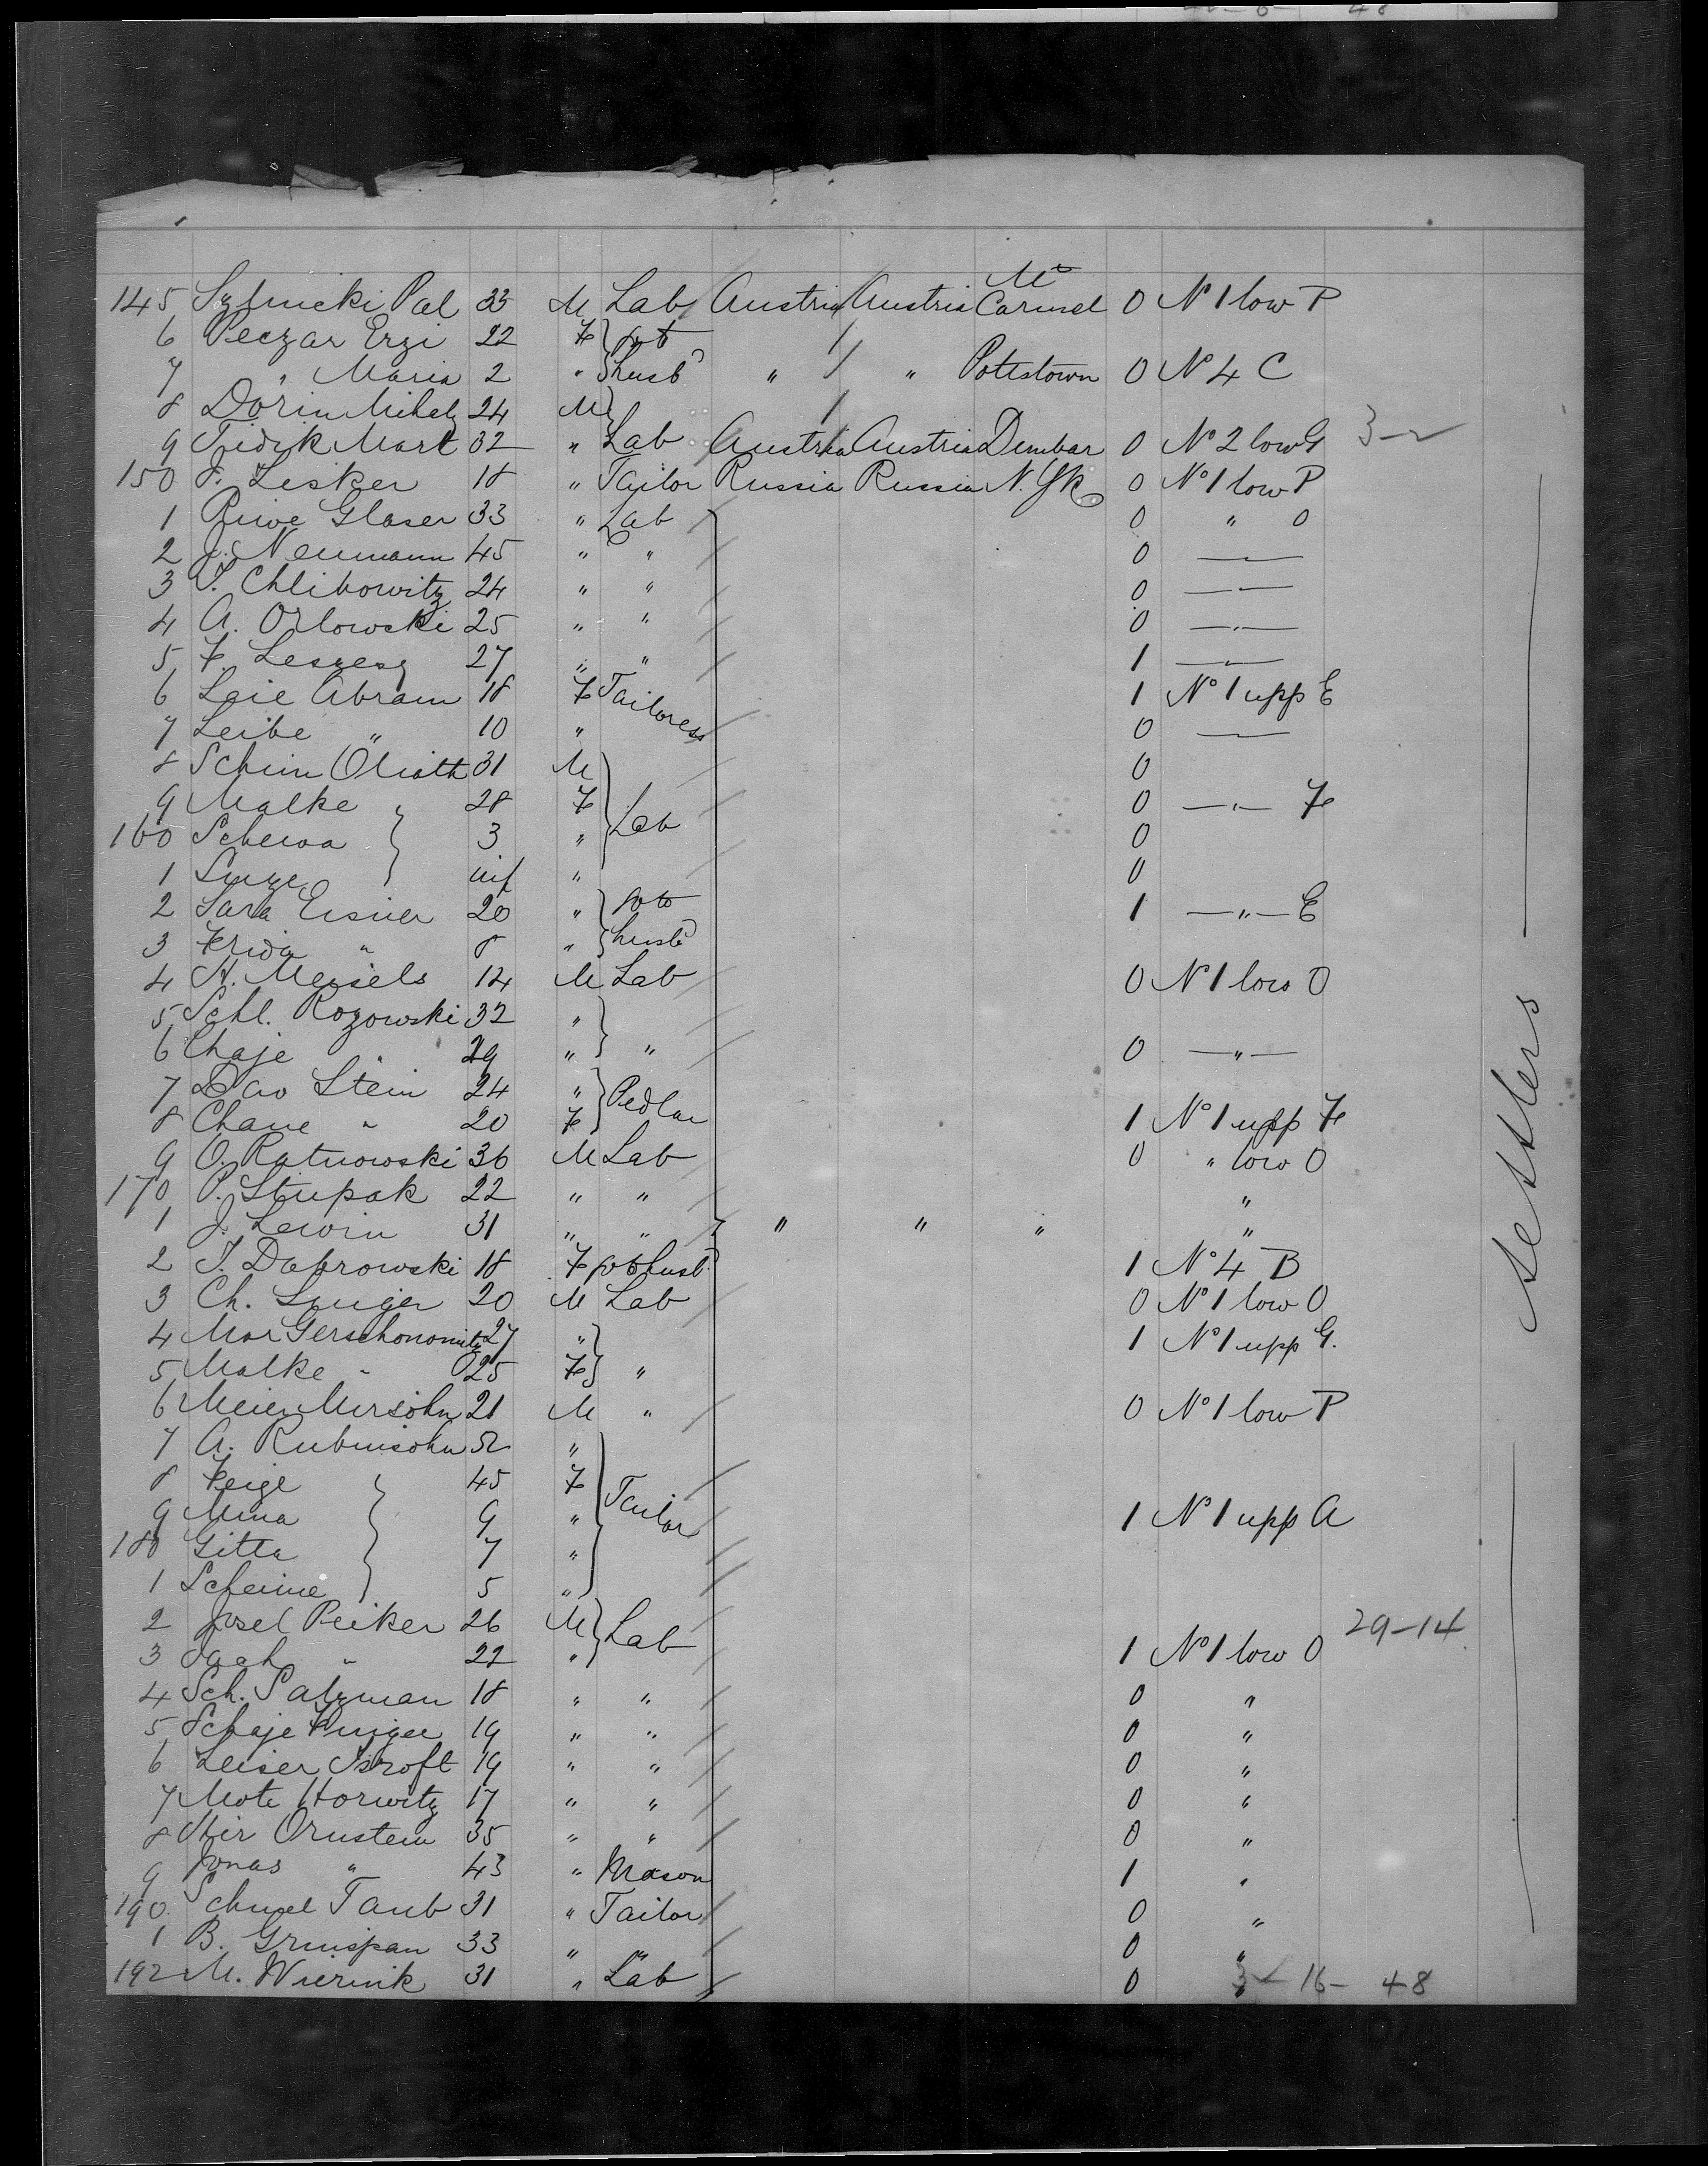 6 48
Mt
145 Szfnicki Pal 33 M Lab Austria Austria Carmel 0 No 1 low P
6 Peczar Erzi 22 F } got
7 " Maria 2 " } husbd " " Pottstown 0 No 4 C
8 Dorin Mihaly 24 M }
9 Fidik Mart 32 " Lab Austria Austria Dunbar 0 No 2 low G 3-
150 Lisker 18 " Tailor Russia Russia N. Yk 0 No 1 low P
1 Riwe Glaser 33 " Lab 0 " 0
2 J. Neumann 45 " " 0 — " —
3 Chlibowitz 24 " " 0 — " —
4 A. Orlowski 25 " " 0 — " —
5 F. Leszesz 27 " " 1 — " —
6 Laie Abram 18 F Tailoress 1 No 1 upp E
7 Leibe " 10 " 0 — " —
8 Schim Oliath 31 M 0
9 Malke 28 F } Lab 0 — " — F
160 Schewa 3 " 0
1 inf " 0
2 Sara Eisner 20 " } got 1 — " — E
3 Frida " 8 " } husbd
4 H. Meisels 14 M Lab 0 No 1 low O
5 Schl. Rozowski 32 " }
6 Chaje " 29 " } " 0 — " —
7 Dav Stein 24 " } Pedlar
8 Chane " 20 F } 1 No 1 upp F
9 O. Ratnowski 36 M Lab 0 " low O
170 P. Stupak 22 " " "
1 J. Lewin 31 " " " " " "
2 Dabrowski 18 F got husbd 1 No 4 B
3 Ch. 20 M Lab 0 No 1 low O
4 Mor Gerschonowitz 27 " } 1 No 1 upp G.
5 Malke " 25 F } "
6 Meier Mirsohn 21 M " 0 No 1 low P
7 A. Rubinsohn 52 "
8 Feige 45 F } Tailor
9 Mina 9 " 1 No 1 upp A
180 Gitta 7 "
1 Scheine 5 "
2 Josel Peiker 26 M } Lab 29-14
3 " 22 " } 1 No 1 low O
4 Sch. Salzman 18 " " 0 "
5 Schaje 19 " " 0 "
6 Leiser Isroft 19 " " 0 "
7 Mote Horwitz 17 " " 0 "
8 Hir Ornstein 35 " " 0 "
9 Jonas " 43 " Mason 1 "
190 Schmel Taub 31 " Tailor 0 "
1 B. Grinspan 33 " " 0 "
192 M. Wiernik 31 " Lab 0 " 16- 48
settlers